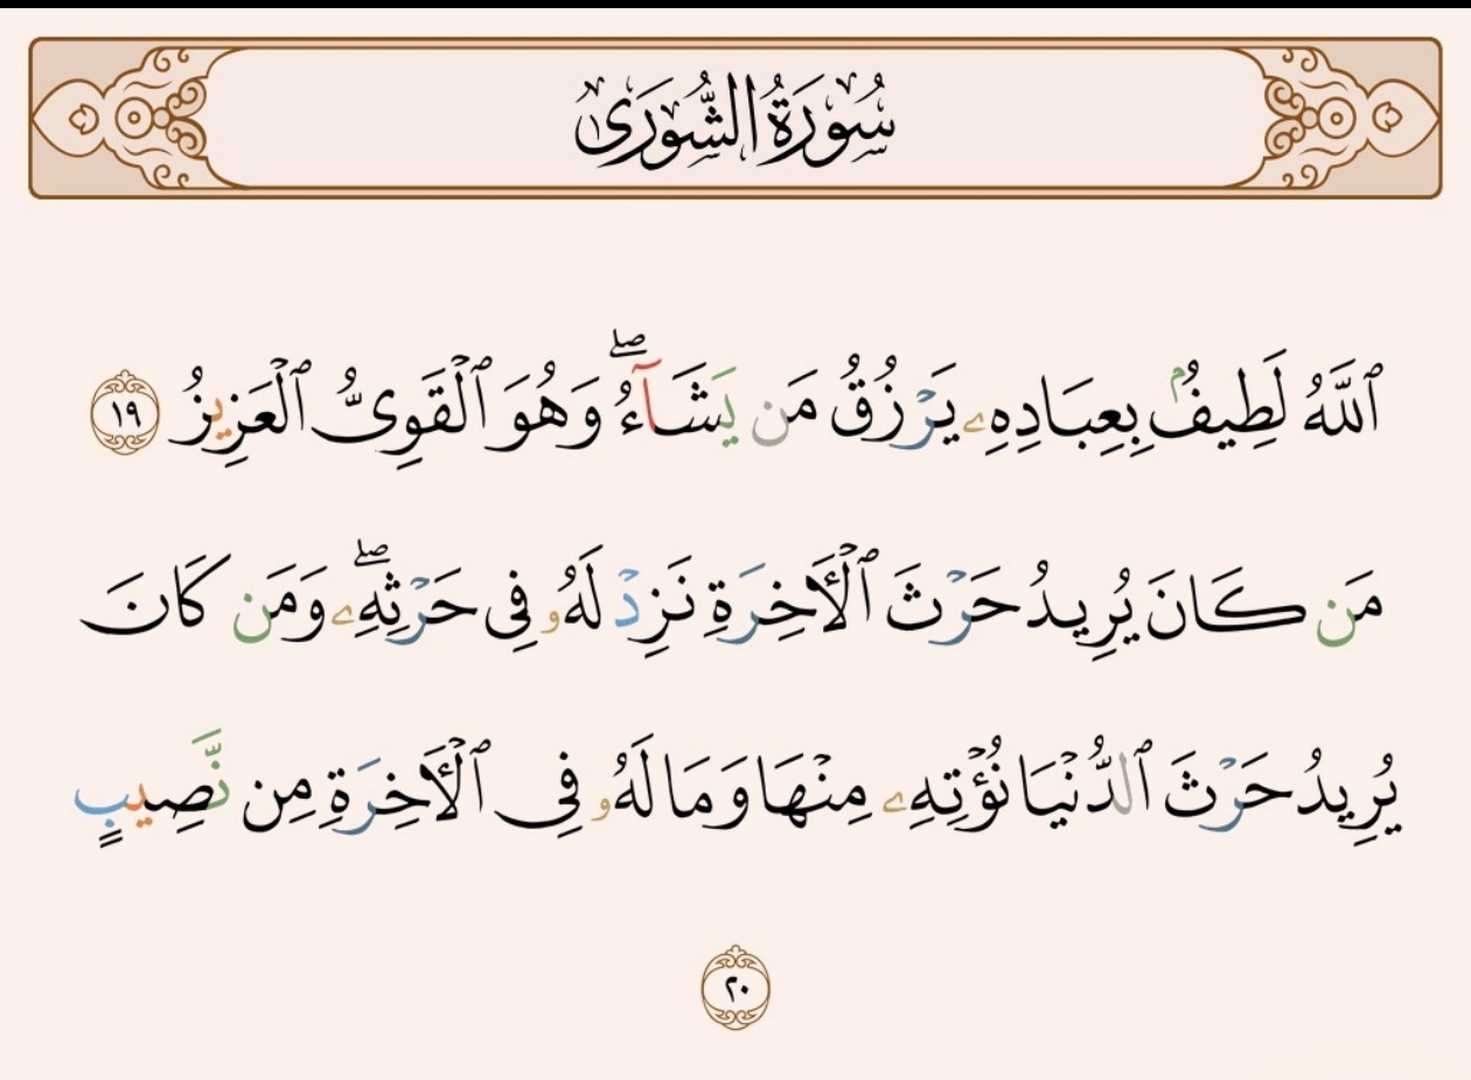 سُورَةُ الشُّورَىٰ
ٱللَّهُ لَطِيفٌۢ بِعِبَادِهِۦ يَرْزُقُ مَن يَشَآءُۖ وَهُوَ ٱلْقَوِىُّ ٱلْعَزِيزُ ١٩
مَن كَانَ يُرِيدُ حَرْثَ ٱلْأَخِرَةِ نَزِدْ لَهُۥ فِى حَرْثِهِۦۖ وَمَن كَانَ
يُرِيدُ حَرْثَ ٱلدُّنْيَا نُؤْتِهِۦ مِنْهَا وَمَا لَهُۥ فِى ٱلْأَخِرَةِ مِن نَّصِيبٍ
٢٠